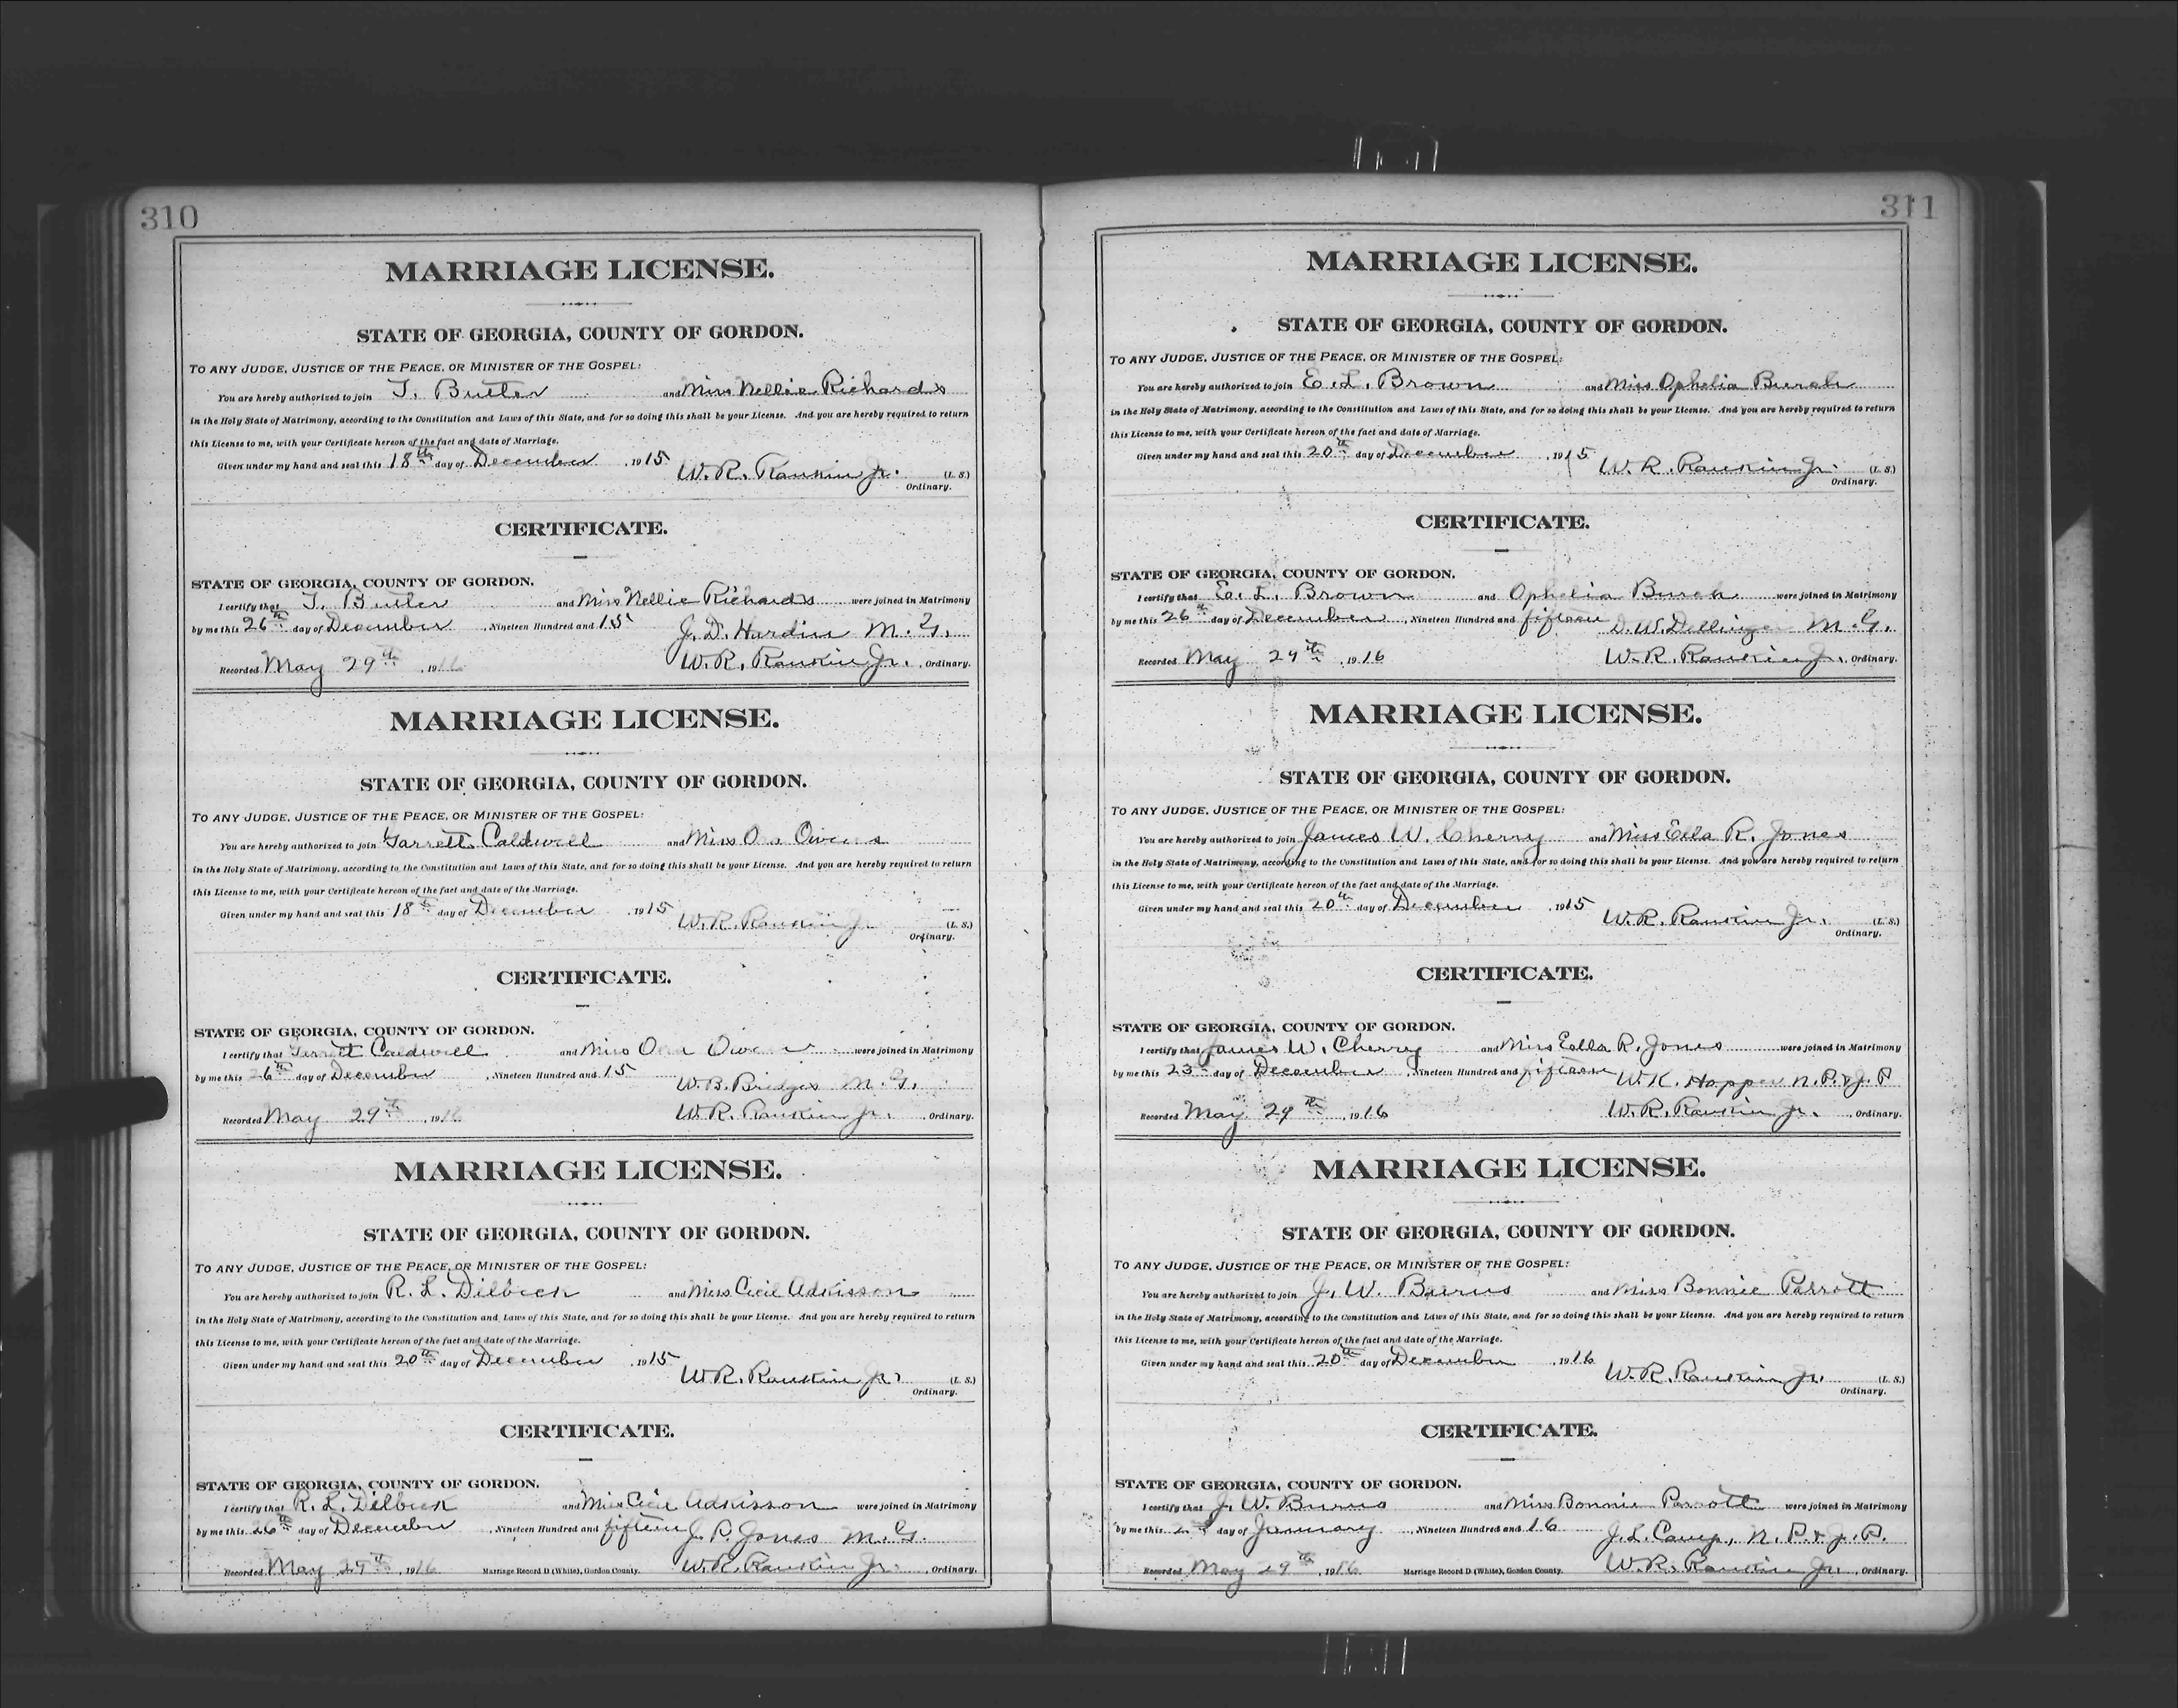 310
MARRIAGE LICENSE.
STATE OF GEORGIA, COUNTY OF GORDON.
TO ANY JUDGE, JUSTICE OF THE PEACE, OR MINISTER OF THE GOSPEL:
You are hereby authorized to join T. Butler and Miss Nellie Richards
in the Holy State of Matrimony, according to the Constitution and Laws of this State, and for so doing this shall be your License. And you are hereby required to return
this License to me, with your Certificate hereon of the fact and date of Marriage.
Given under my hand and seal this 18th day of December, 1915
W. R. Rankin Jr. (L. S.)
Ordinary.
CERTIFICATE.
STATE OF GEORGIA, COUNTY OF GORDON.
I certify that T. Butler and Miss Nellie Richards were joined in Matrimony
by me this 26th day of December, Nineteen Hundred and 15 J. D. Hardin M. G.
Recorded May 29th, 1916 W. R. Rankin Jr., Ordinary.
MARRIAGE LICENSE.
STATE OF GEORGIA, COUNTY OF GORDON.
TO ANY JUDGE, JUSTICE OF THE PEACE, OR MINISTER OF THE GOSPEL:
You are hereby authorized to join Garrett Caldwell and Miss Owens
in the Holy State of Matrimony, according to the Constitution and Laws of this State, and for so doing this shall be your License. And you are hereby required to return
this License to me, with your Certificate hereon of the fact and date of the Marriage.
Given under my hand and seal this 18th day of December, 1915
W. R. Rankin Jr. (L. S.)
Ordinary.
CERTIFICATE.
STATE OF GEORGIA, COUNTY OF GORDON.
I certify that Garrett Caldwell and Miss were joined in Matrimony
by me this 26th day of December, Nineteen Hundred and 15 W. B. Bridges M. G.
Recorded May 29th, 1916 W. R. Rankin Jr., Ordinary.
MARRIAGE LICENSE.
STATE OF GEORGIA, COUNTY OF GORDON.
TO ANY JUDGE, JUSTICE OF THE PEACE, OR MINISTER OF THE GOSPEL:
You are hereby authorized to join R. L. Dilbeck and Miss Cecil Adkisson
in the Holy State of Matrimony, according to the Constitution and Laws of this State, and for so doing this shall be your License. And you are hereby required to return
this License to me, with your Certificate hereon of the fact and date of the Marriage.
Given under my hand and seal this 20th day of December, 1915
W. R. Rankin Jr. (L. S.)
Ordinary.
CERTIFICATE.
STATE OF GEORGIA, COUNTY OF GORDON.
I certify that R. L. Dilbeck and Miss Cecil Adkisson were joined in Matrimony
by me this 26th day of December, Nineteen Hundred and fifteen J. P. Jones M. G.
Recorded May 29th, 1916 Marriage Record D (White), Gordon County. W. R. Rankin Jr., Ordinary.
311
MARRIAGE LICENSE.
STATE OF GEORGIA, COUNTY OF GORDON.
TO ANY JUDGE, JUSTICE OF THE PEACE, OR MINISTER OF THE GOSPEL:
You are hereby authorized to join E. L. Brown and Miss Ophelia Burch
in the Holy State of Matrimony, according to the Constitution and Laws of this State, and for so doing this shall be your License. And you are hereby required to return
this License to me, with your Certificate hereon of the fact and date of Marriage.
Given under my hand and seal this 20th day of December, 1915
W. R. Rankin Jr. (L. S.)
Ordinary.
CERTIFICATE.
STATE OF GEORGIA, COUNTY OF GORDON.
I certify that E. L. Brown and Ophelia Burch were joined in Matrimony
by me this 26th day of December, Nineteen Hundred and fifteen D. W. Dellinger M. G.
Recorded May 29th, 1916 W. R. Rankin Jr., Ordinary.
MARRIAGE LICENSE.
STATE OF GEORGIA, COUNTY OF GORDON.
TO ANY JUDGE, JUSTICE OF THE PEACE, OR MINISTER OF THE GOSPEL:
You are hereby authorized to join James W. Cherry and Miss Ella R. Jones
in the Holy State of Matrimony, according to the Constitution and Laws of this State, and for so doing this shall be your License. And you are hereby required to return
this License to me, with your Certificate hereon of the fact and date of the Marriage.
Given under my hand and seal this 20th day of December, 1915
W. R. Rankin Jr. (L. S.)
Ordinary.
CERTIFICATE.
STATE OF GEORGIA, COUNTY OF GORDON.
I certify that James W. Cherry and Miss Ella R. Jones were joined in Matrimony
by me this 23 day of December, Nineteen Hundred and fifteen W. K. Hopper N. P. & J. P
Recorded May 29th, 1916 W. R. Rankin Jr., Ordinary.
MARRIAGE LICENSE.
STATE OF GEORGIA, COUNTY OF GORDON.
TO ANY JUDGE, JUSTICE OF THE PEACE, OR MINISTER OF THE GOSPEL:
You are hereby authorized to join J. W. Burns and Miss Bonnie Parrott
in the Holy State of Matrimony, according to the Constitution and Laws of this State, and for so doing this shall be your License. And you are hereby required to return
this License to me, with your Certificate hereon of the fact and date of the Marriage.
Given under my hand and seal this 20th day of December, 1916
W. R. Rankin Jr. (L. S.)
Ordinary.
CERTIFICATE.
STATE OF GEORGIA, COUNTY OF GORDON.
I certify that J. W. Burns and Miss Bonnie Parrott were joined in Matrimony
by me this day of January, Nineteen Hundred and 16 J. L. Camp, N. P. & J. P.
Recorded May 29th, 1916 Marriage Record D (White), Gordon County. W. R. Rankin Jr., Ordinary.